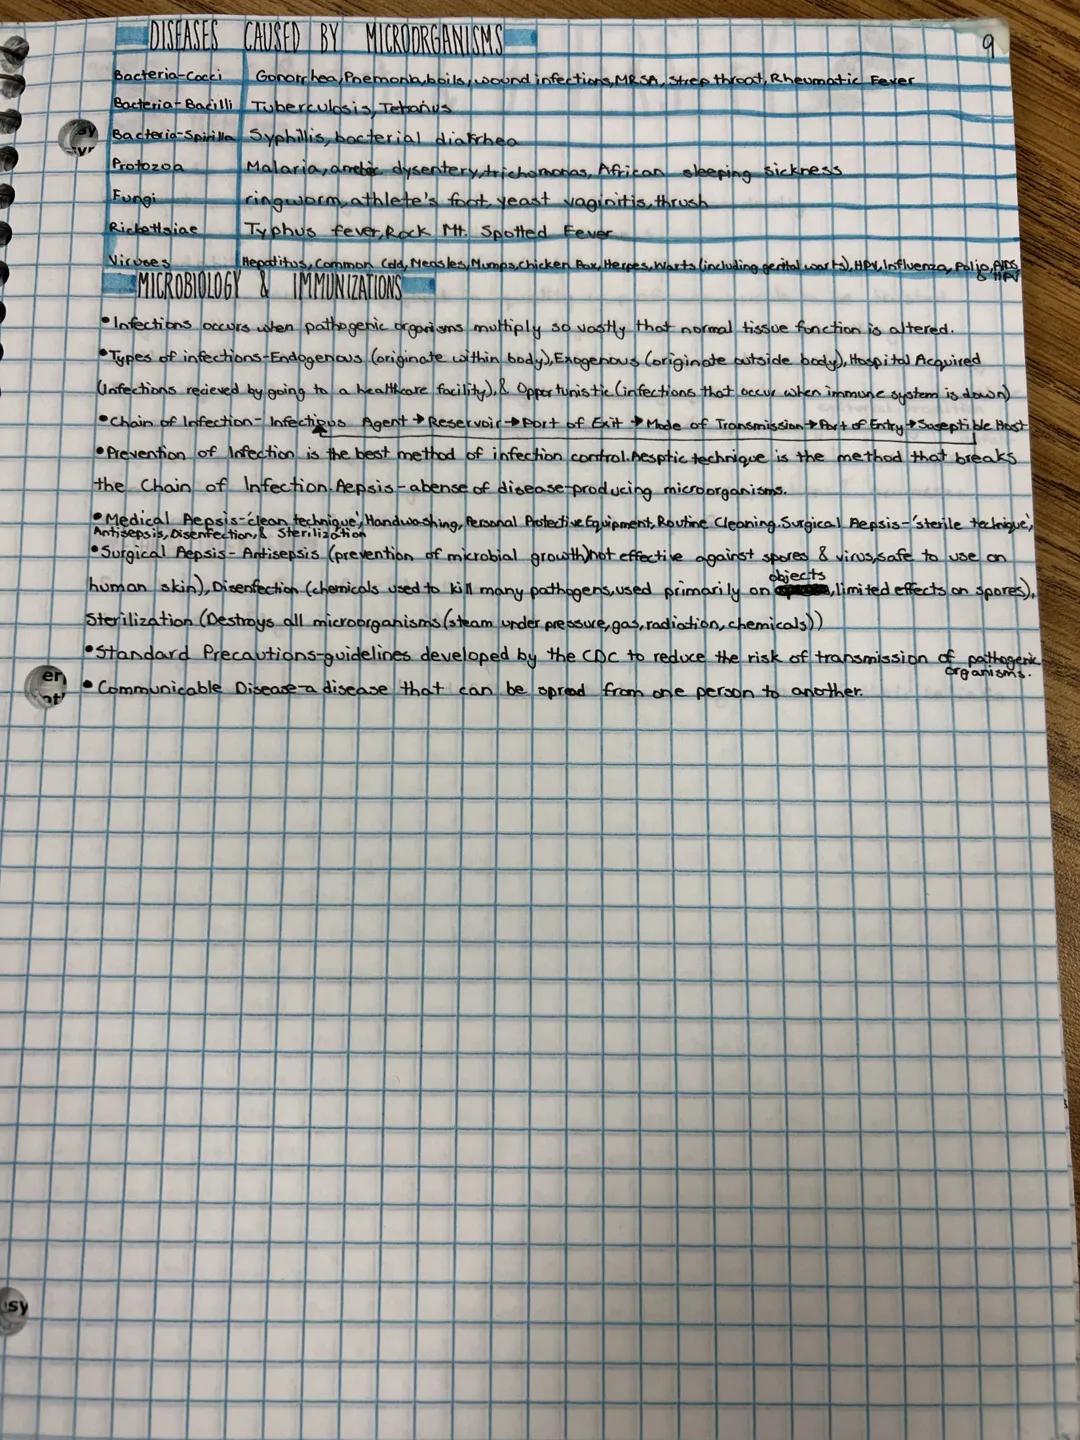 DISEASES CAUSED BY MICROORGANISMS
9
Bacteria-Cocci Gonorrhea, Pnemonia, boils, wound infections, MRSA, Strep throat, Rheumatic Fever
Bacteria-Bacilli Tuberculosis, Tetanus
Bacteria-Spirilla Syphillis, bacterial diarrhea
Protozoa Malaria, amebic dysentery, trichomonas, African sleeping sickness
Fungi ringworm, athlete's foot, yeast vaginitis, thrush
Rickettsiae Typhus fever, Rock Mt. Spotted Fever
Viruses Hepatitus, Common Cold, Measles, Mumps, Chicken Pox, Herpes, Warts (including genital warts), HPV, Influenza, Polio, AIDS,
MICROBIOLOGY & IMMUNIZATIONS
•Infections occurs when pathogenic organisms multiply so vastly that normal tissue function is altered.
•Types of infections-Endogenous (originate within body), Exogenous (originate outside body), Hospital Acquired
(Infections recieved by going to a healthcare facility), & Opportunistic (infections that occur when immune system is down)
•Chain of Infection- Infectious Agent → Reservoir → Port of Exit → Mode of Transmission → Port of Entry → Suseptible Host
•Prevention of Infection is the best method of infection control. Aesptic technique is the method that breaks
the Chain of Infection. Aepsis-abense of disease-producing microorganisms.
•Medical Aepsis-'clean technique', Handwashing, Personal Protective Equipment, Routine Cleaning. Surgical Aepsis-'sterile technique',
Antisepsis, Disenfection, & Sterilization
•Surgical Aepsis- Antisepsis (prevention of microbial growth) not effective against spores & virus, safe to use on
human skin), Disenfection (chemicals used to kill many pathogens, used primarily on objects, limited effects on spores),
Sterilization (Destroys all microorganisms (steam under pressure, gas, radiation, chemicals))
•Standard Precautions-guidelines developed by the CDC to reduce the risk of transmission of pathogenic
organisms.
•Communicable Disease-a disease that can be spread from one person to another.